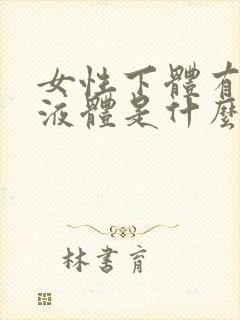 女性下體有
液體是什麼
林書育